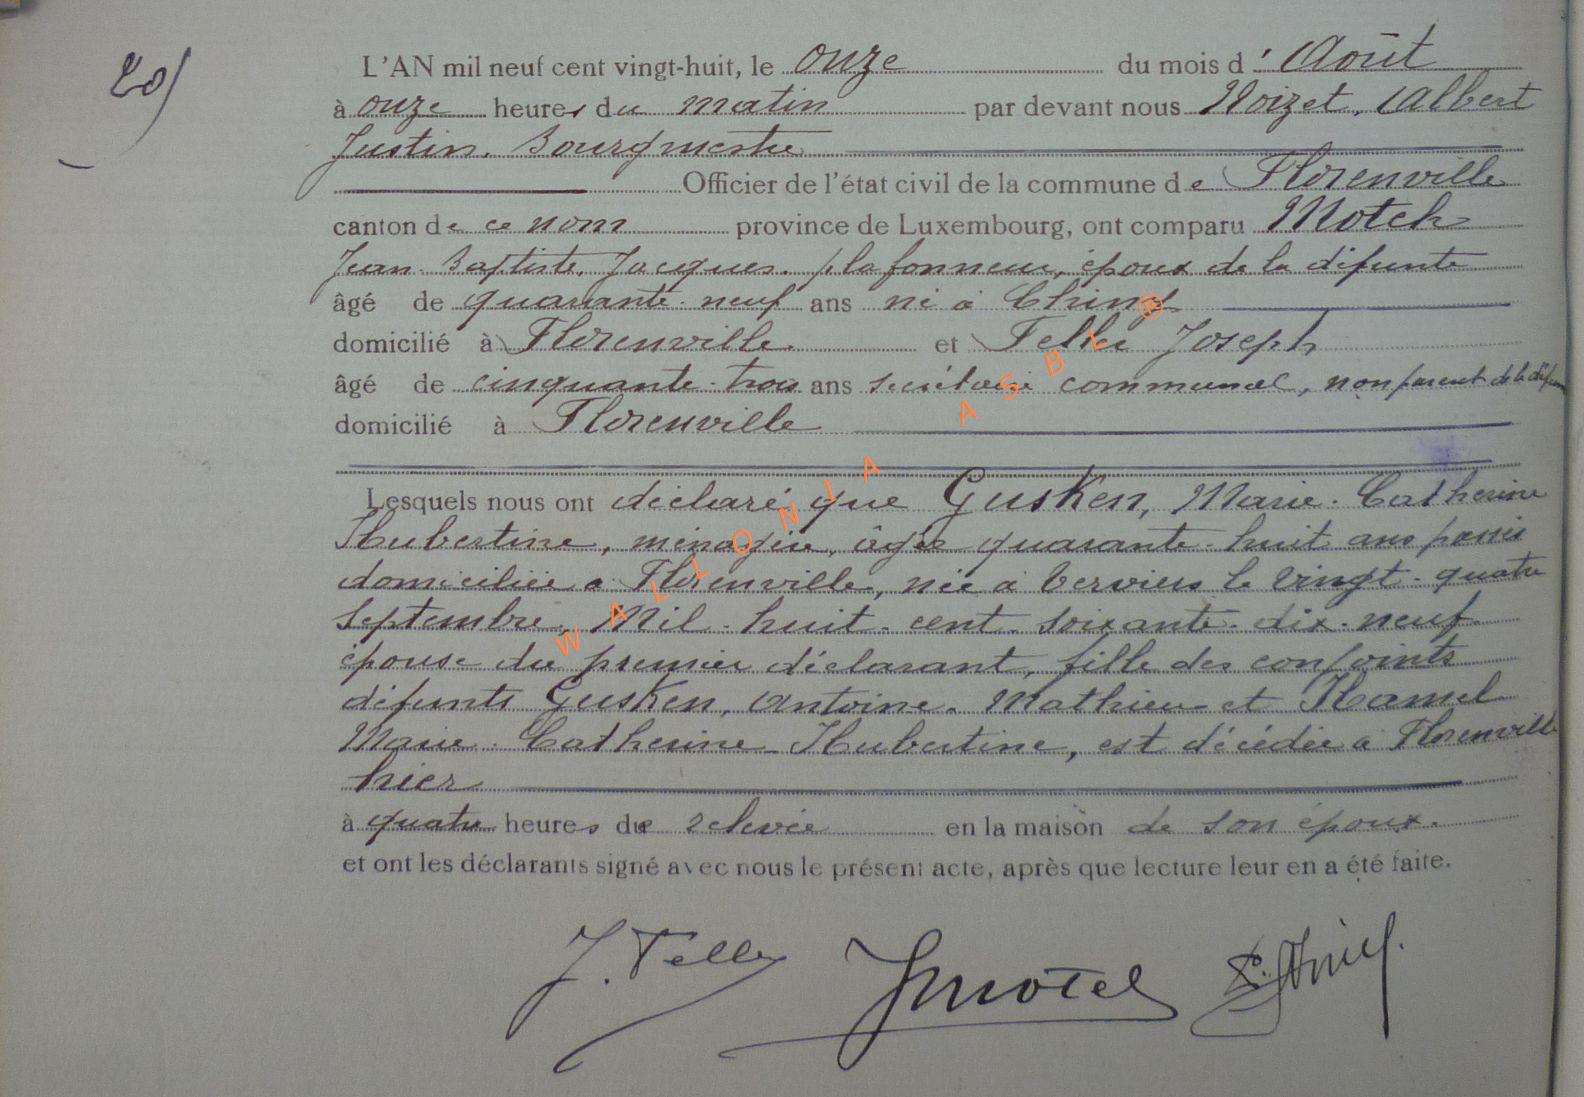 20)
L'AN mil neuf cent vingt-huit, le onze du mois d' Août
à onze heures du matin par devant nous Noizet, Albert
Justin, Bourgmestre
Officier de l'état civil de la commune de Florenville
canton de ce nom province de Luxembourg, ont comparu Motch
Jean-Baptiste, Jacques, plafonneur, époux de la défunte
âgé de quarante-neuf ans né à Chiny
domicilié à Florenville et Feller Joseph
âgé de cinquante-trois ans secrétaire communal, non parent de la défunte
domicilié à Florenville
Lesquels nous ont déclaré que Gusken, Marie-Catherine
Hubertine, ménagère, âgée quarante-huit ans passés
domiciliée à Florenville, née à Verviers le vingt-quatre
septembre Mil-huit-cent-soixante-dix-neuf
épouse du premier déclarant, fille des conjoints
défunts Gusken, Antoine-Mathieu et Hamel
Marie-Catherine-Hubertine, est décédée à Florenville
hier
à quatre heures de relevée en la maison de son époux.
et ont les déclarants signé avec nous le présent acte, après que lecture leur en a été faite.
J. Feller JMotch
WALLONIA ASBL ®